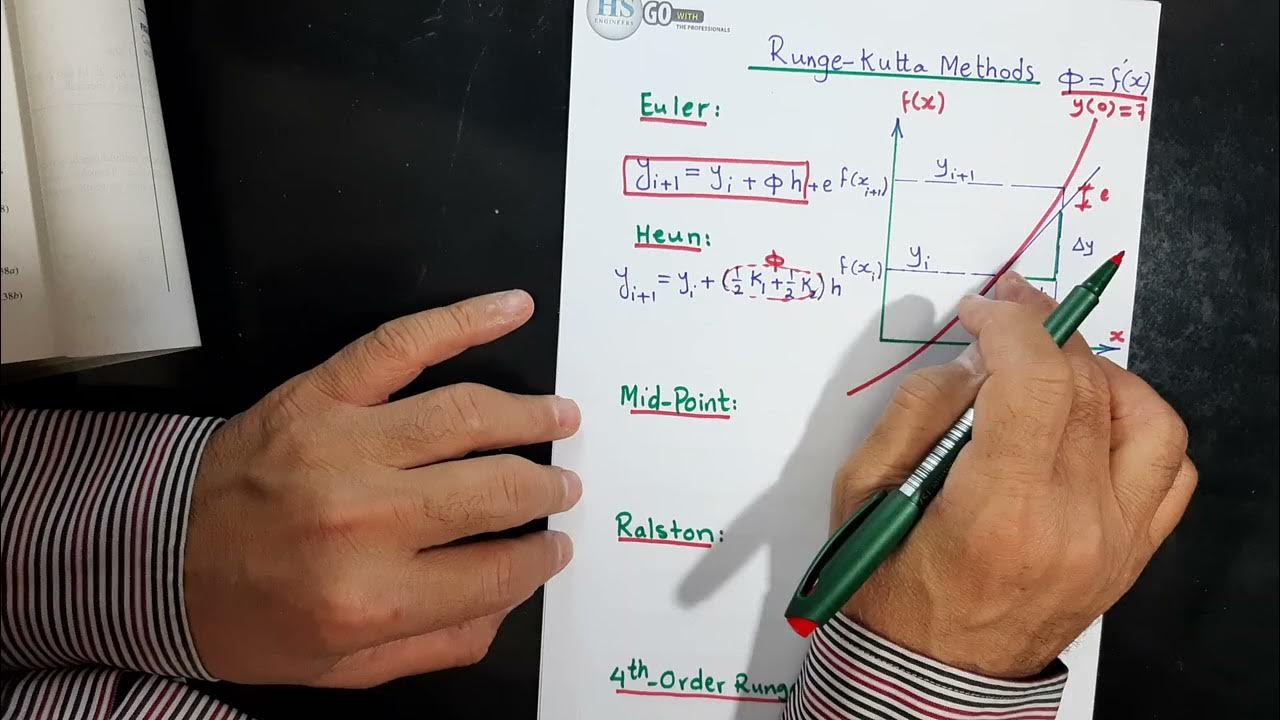 HS
ENGINEERS
GO WITH
THE PROFESSIONALS
Runge-Kutta Methods
Φ = f'(x)
y(0)=7
Euler:
f(x)
y_{i+1} = y_i + Φ h + e
f(x_{i+1})
y_{i+1}
e
Heun:
Δy
Φ
f(x_i)
y_i
y_{i+1} = y_i + (½ K_1 + ½ K_2) h
x
Mid-Point:
Ralston:
4th-Order Rung
38a)
38b)